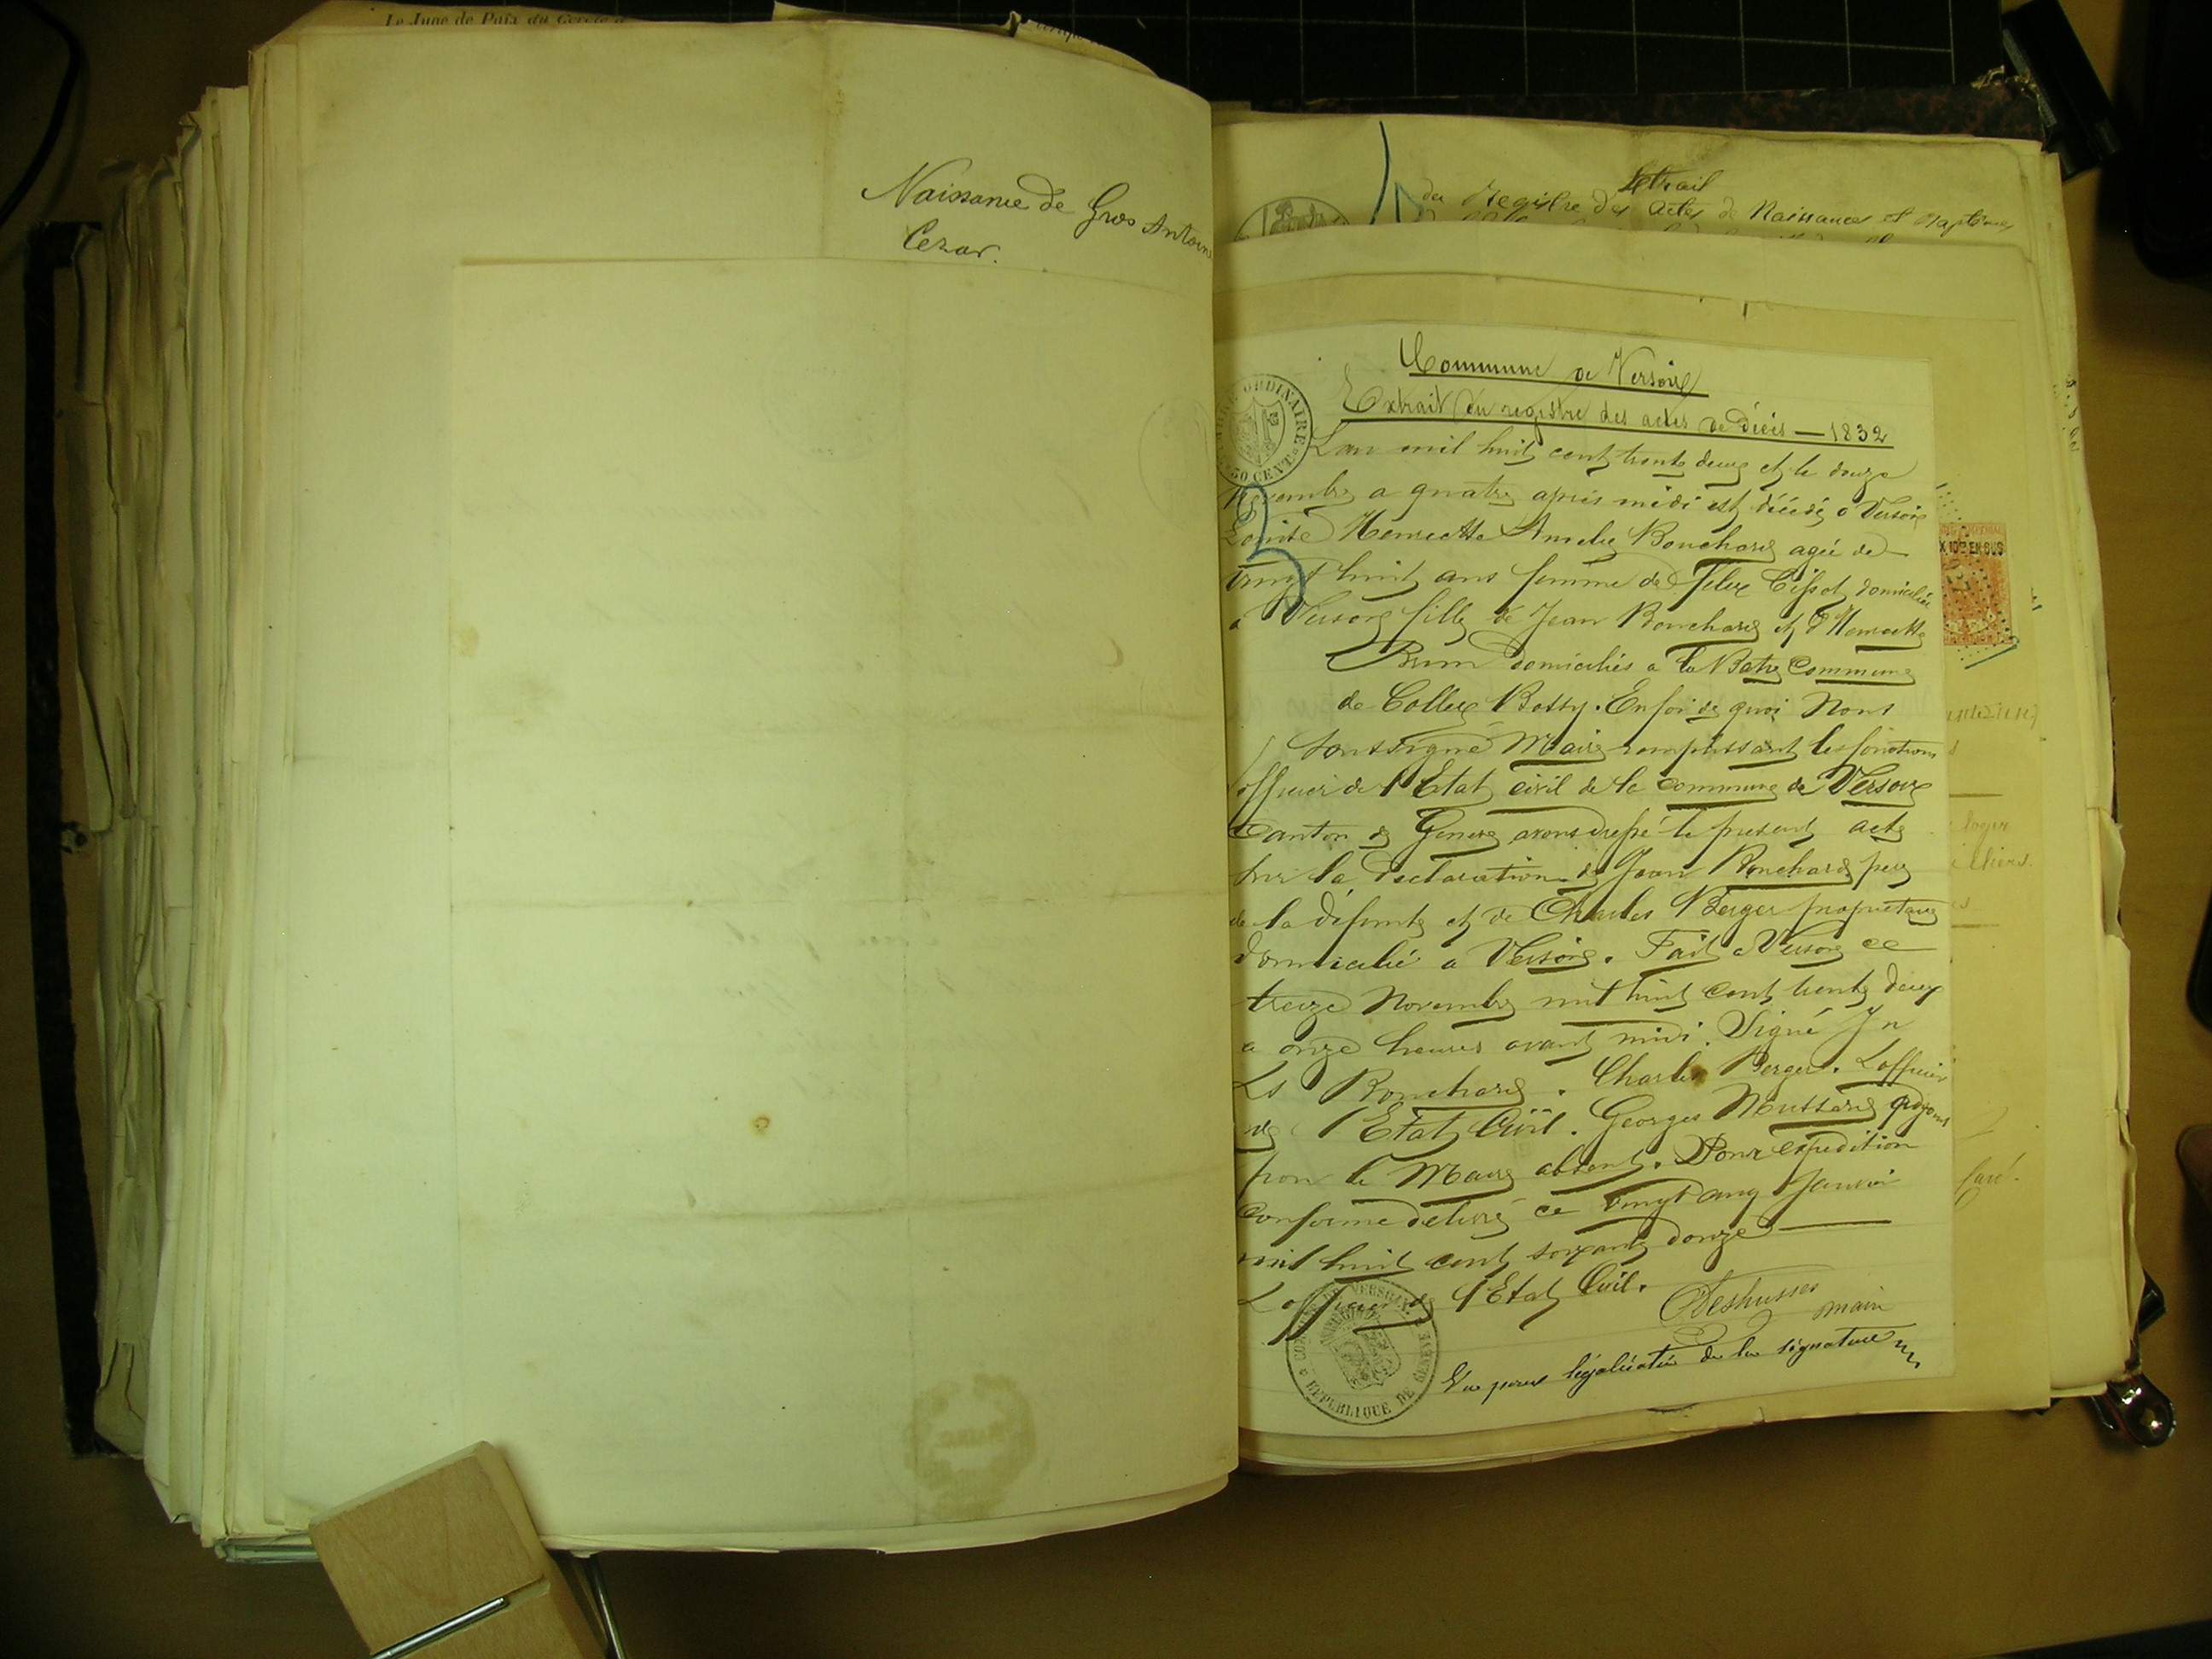 Le Juge de Paix du Cercle d
Naissance de Gros Antoine
Cezar.
Extrait
du Registre des actes de Naissances et Baptêmes
Commune de Versoix
Extrait du registre des actes de décès — 1832
TIMBRE ORDINAIRE
50 CENT
L'an mil huit cent trente deux et le douze
Novembre a quatre après midi est décédé a Versoix
Louise Henriette Amelie Bouchard agée de
vingt huit ans femme de Felix Tissot domiciliée
a Versoix fille de Jean Bouchard et d'Henriette
Brun domiciliés a la Batie Commune
de Collex Bossy. En foi de quoi Nous
soussigné Maire remplissant les fonctions
d'officier de l'Etat civil de la commune de Versoix
Canton de Geneve avons dressé le present acte
sur la declaration de Jean Bouchard pere
de la défunte et de Charles Berger propriétaire
domicilié a Versoix. Fait a Versoix ce
treize Novembre mil huit cent trente deux
a onze heures avant midi. Signé Jn
Ls Bouchard. Charles Berger. L'officier
de l'Etat Civil. Georges Mussard adjoint
pour le Maire absent. Pour expedition
Conforme delivré ce vingt cinq Janvier
mil huit cent soixante douze
L'officier de l'Etat Civil.
Deshusses
maire
COMMUNE DE VERSOIX
REPUBLIQUE DE GENEVE
Vu pour légalisation de la signature
X 10mes EN SUS